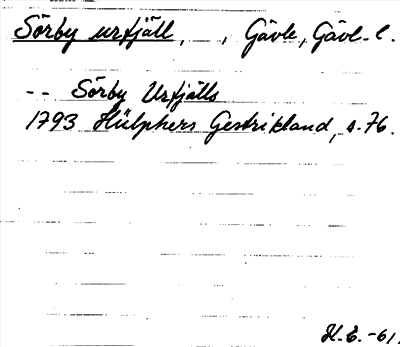 Sörby urfjäll, , Gävle, Gävl. l.
-- Sörby Urfjälls
1793 Hülphers Gestrikland, s. 76.
H. E. -61.